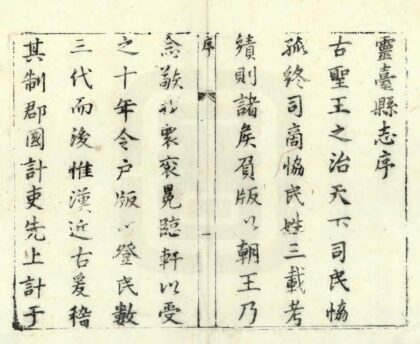 靈臺縣志序
古聖王之治天下司民協
孤終司商協民姓三載考
績則諸矦負版以朝王乃
序
袞冕臨軒以受
之十年令户版以登民數
三代而後惟漢近古爰稽
其制郡國計吏先上計于